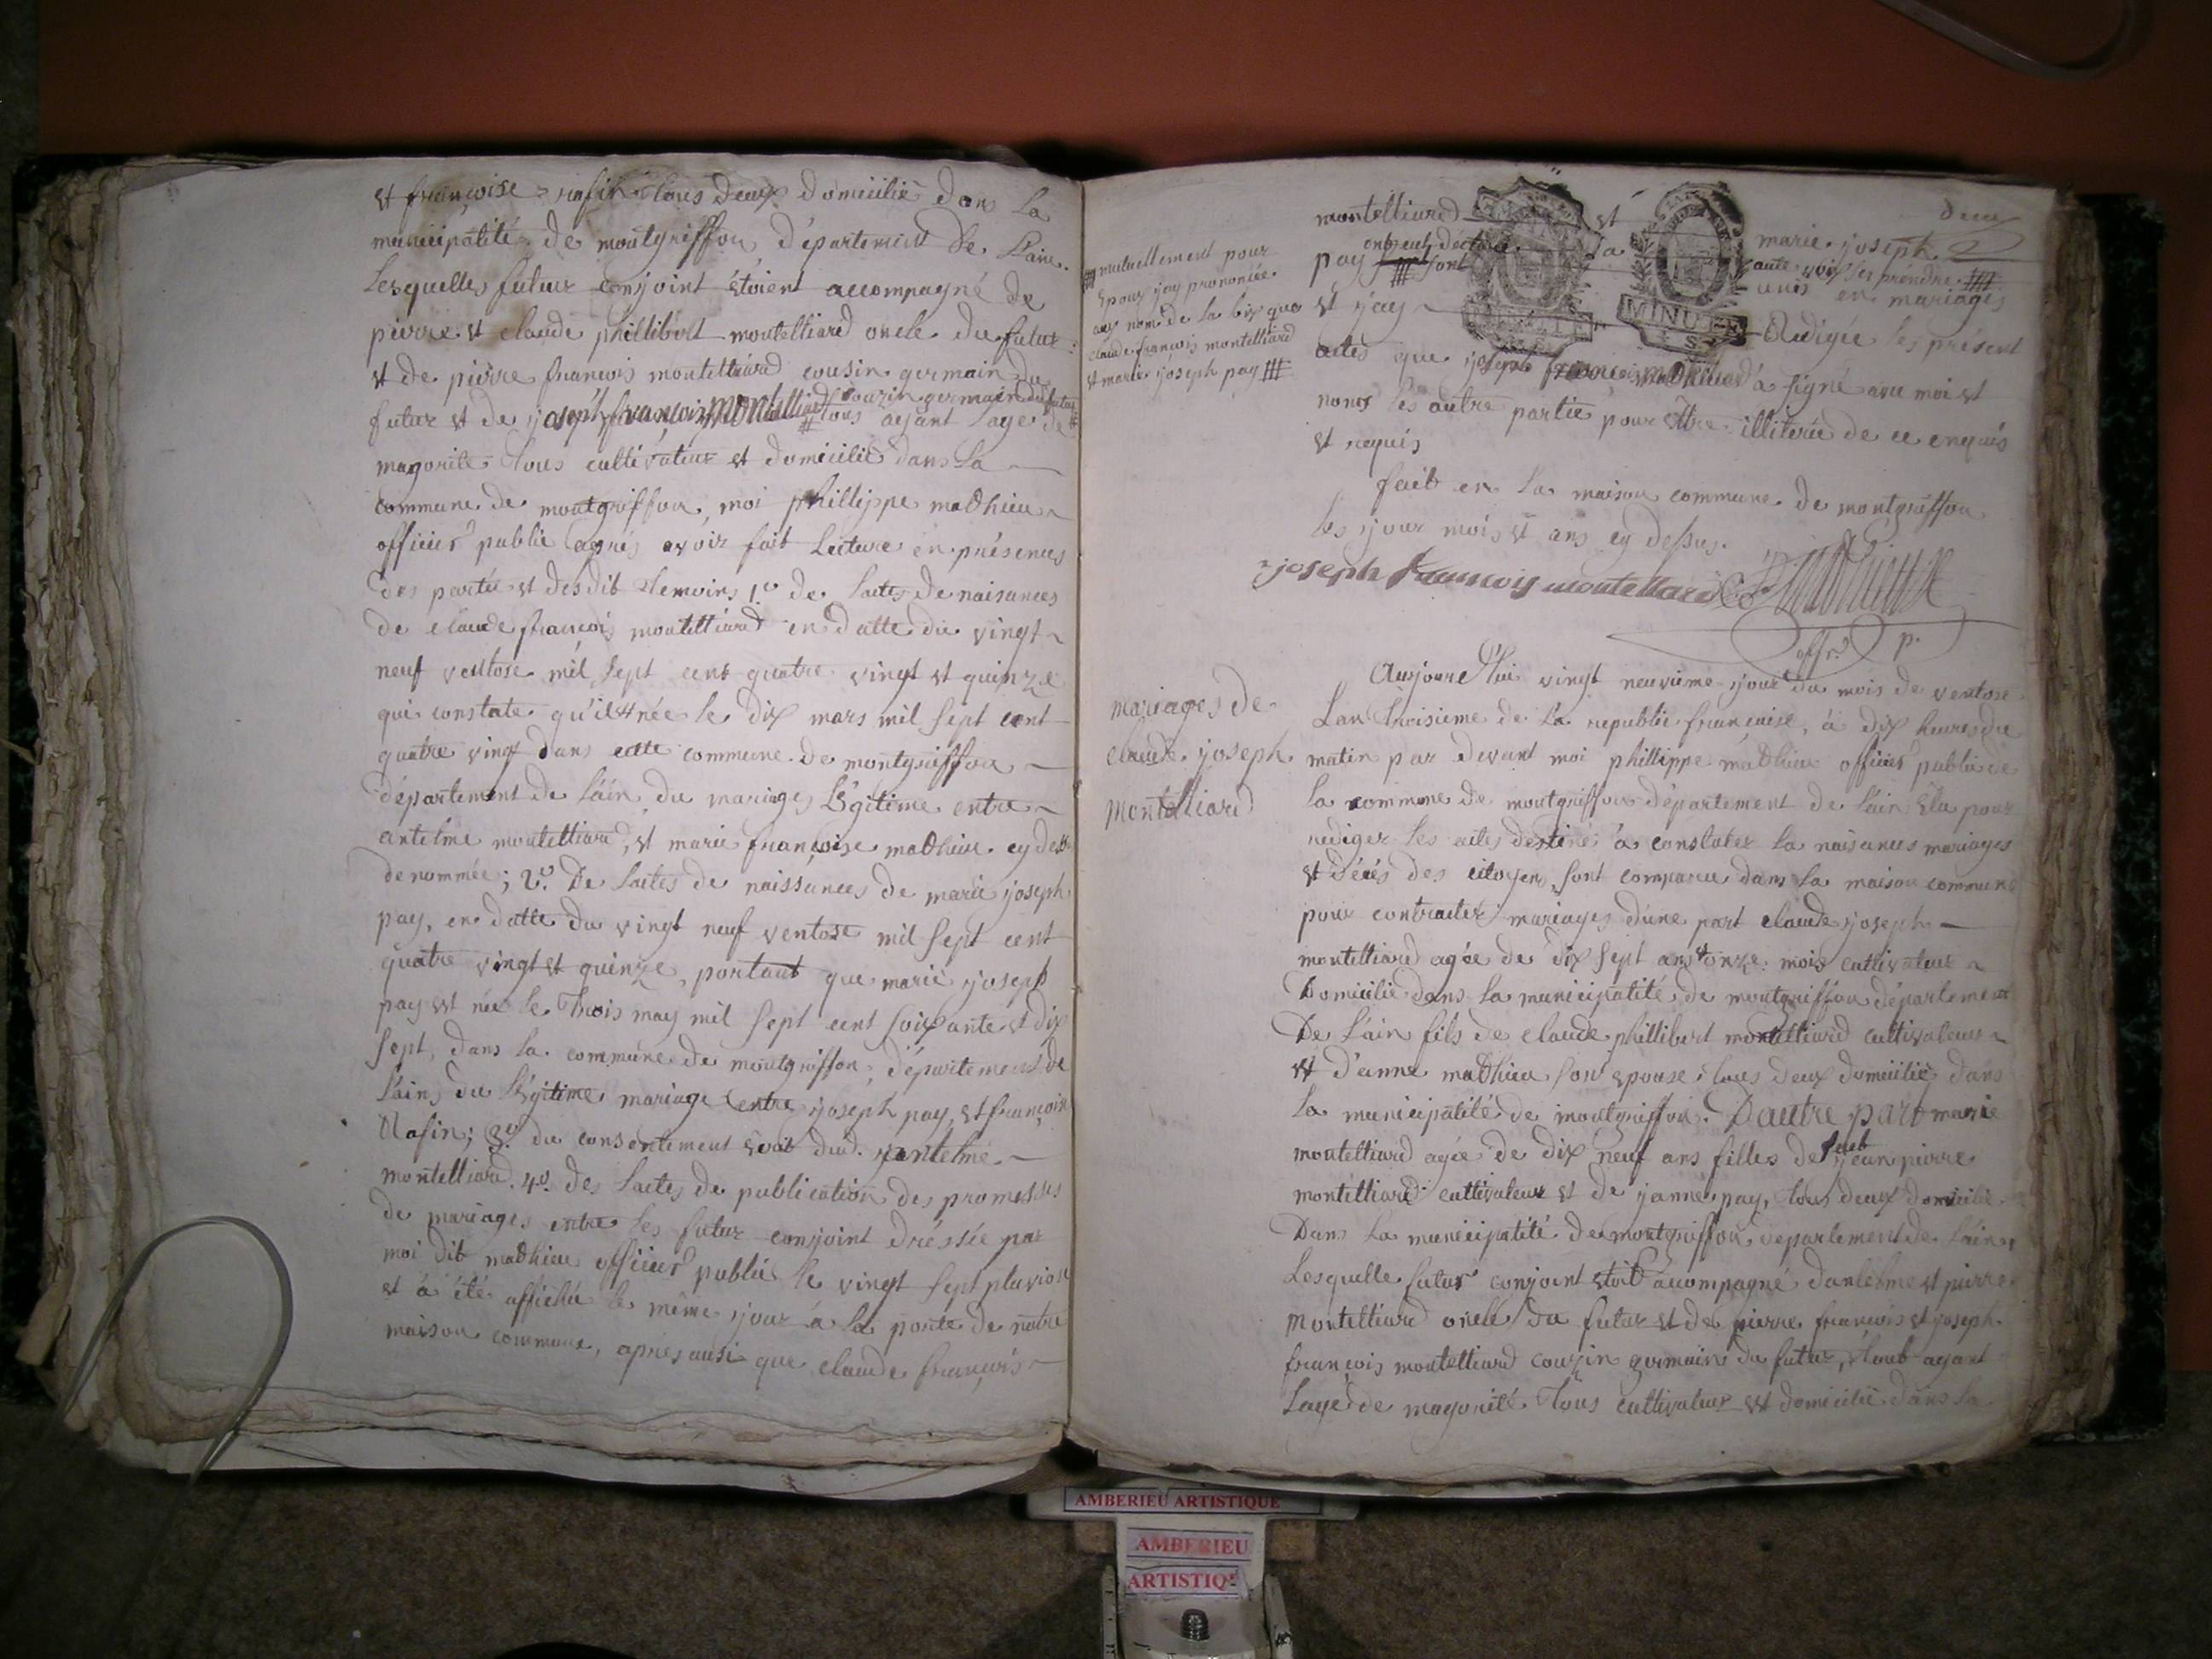 et françoise rafin tous deux domicilié dans la
municipatité de montgriffon département de L'ain.
Lesquelles futur conjoint étoient accompagné de
pierre et claude phillibert montelliard oncle du futur
et de pierre francois montelliard cousin germain du
futur et de joseph francois montelliard couzin germain du futur # tous ayant l'age de
magorité tous cultivateur et domicilié dans la
commune de montgriffon, moi phillippe mathieu
officier public après avoir fait lecture en présences
des partie et desdit temoins 1º de lactes de naisances
de claude francois montelliard en datte du vingt
neuf ventose mil sept cent quatre vingt et quinze
qui constate qu'il née le dix mars mil sept cent
quatre vingt dans cette commune de montgriffon
département de l'ain du mariages légitime entre
antelme montelliard, et marie françoise mathieu cy des
denommée; 2º. De lactes de naissances de marie joseph
pay, en datte du vingt neuf ventose mil sept cent
quatre vingt et quinze, portant que marie joseph
pay est née le trois may mil sept cent soixante et dix
sept, dans la commune de montgriffon, département de
l'ains du légitime mariage entre joseph pay, et françoise
Rafin; 3º du consentement dud. antelme
montelliard. 4º. des lactes de publication des promesses
de mariages entre les futur conjoint dréssée par
moi dit mathieu officier public le vingt sept pluviose
et à été affichée le même jour à la porte de notre
maison commune, après ausi que claude françois
mutuellement pour
Epoux j'ay prononcée
au nom de la loix que
claude francois montelliard
et marie joseph pay
deux
montelliard et marie joseph
pay ont déclaré à aute voix ses prendre
sont unis en mariages
et j'ay Rédigée les présent
actes que joseph francois montelliard a signé avec moi et
nonos les autre partie pour être illiterée de ce enquis
et requis
fait en la maison commune de montgriffon
les jour mois et ans cy dessus.
MINUTE
joseph francois montelliard
offr. p.
mariages de
claude joseph
montelliard
Aujourd'hui vingt neuvième jour du mois de ventose
L'an troisieme de la republic française, à dix heures du
matin par devant moi phillippe mathieu officier public de
la commune de montgriffon département de l'ain Elu pour
rediger les actes destiné à constater la naisances mariages
et décés des citoyens, sont comparu dans la maison commune
pour contracter mariages d'une part claude joseph
montelliard agée de dix sept ans et onze mois cultivateur
Domicilié dans la municipatité de montgriffon département
De L'ain fils de claude phillibert montelliard cultivateur
et d'anne mathieu son epouse, tous deux domicilié dans
la municipatité de montgriffon. D'autre part marie
montelliard agée de dix neuf ans filles de feut jean pierre
montelliard cultivateur et de janne pay, tous deux domicilie
Dans la municipatité de montgriffon departement de l'ain,
Lesquelle futur conjoint étoit accompagné d'antelme et pierre
montelliard oncle du futur et de pierre francois et joseph
françois montelliard couzin germain du futur, tout ayant
Lage de magorité tous cultivateur et domicilié dans la
AMBERIEU ARTISTIQUE
AMBERIEU
ARTISTIQUE